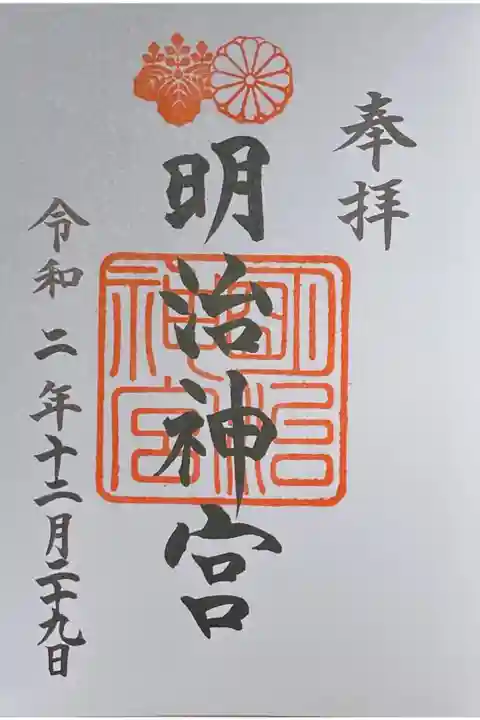 奉拝
明治神宮
明治神宮
令和二年十二月二十九日